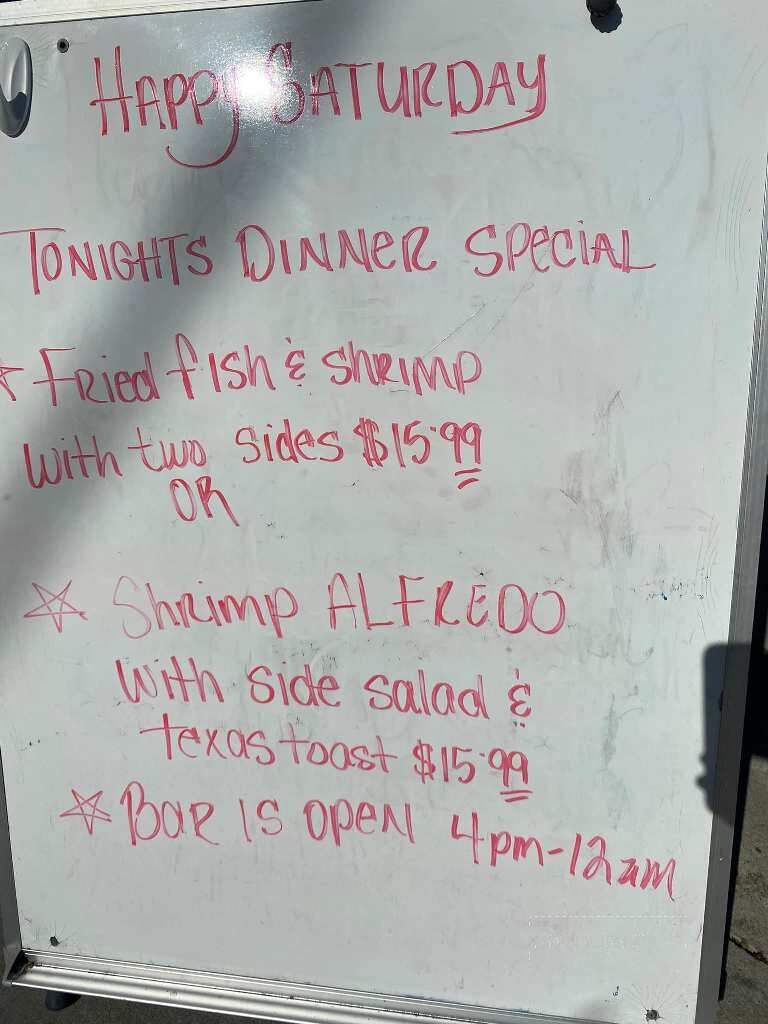 HAPPY SATURDAY
TONIGHTS DINNER SPECIAL
☆ FRied fish & shRIMP
with two sides $15.99
OR
☆ Shrimp ALFREDO
with side salad &
texas toast $15.99
☆ BAR IS OPEN 4pm-12am